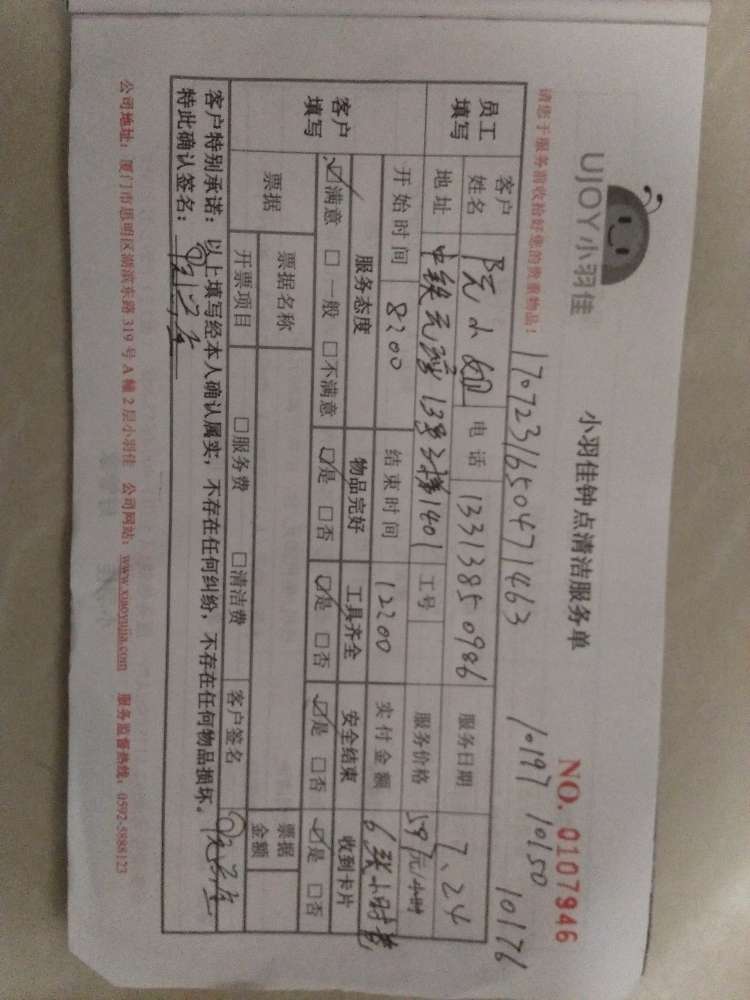 UJOY小羽佳
小羽佳钟点清洁服务单
NO. 0107946
请您于服务前收拾好您的贵重物品！
1707231650471463
10197 10150
10176
员工填写
客户姓名 阮小姐 电话 13313850986 服务日期 7、24
地址 中铁元湾13号2梯1401 工号 服务价格 59元/小时
开始时间 8:00 结束时间 12:00 实付金额
客户填写
服务态度 物品完好 工具齐全 安全结束 收到卡片
☑满意 □一般 □不满意 ☑是 □否 ☑是 □否 ☑是 □否 ☑是 □否
票据 票据名称 票据金额
开票项目 □服务费 □清洁费 客户签名
客户特别承诺：以上填写经本人确认属实，不存在任何纠纷，不存在任何物品损坏。
特此确认签名：
公司地址：厦门市思明区湖滨东路319号A幢2层小羽佳 公司网站：www.xiaoyujia.com 服务监督热线：0592-5888123